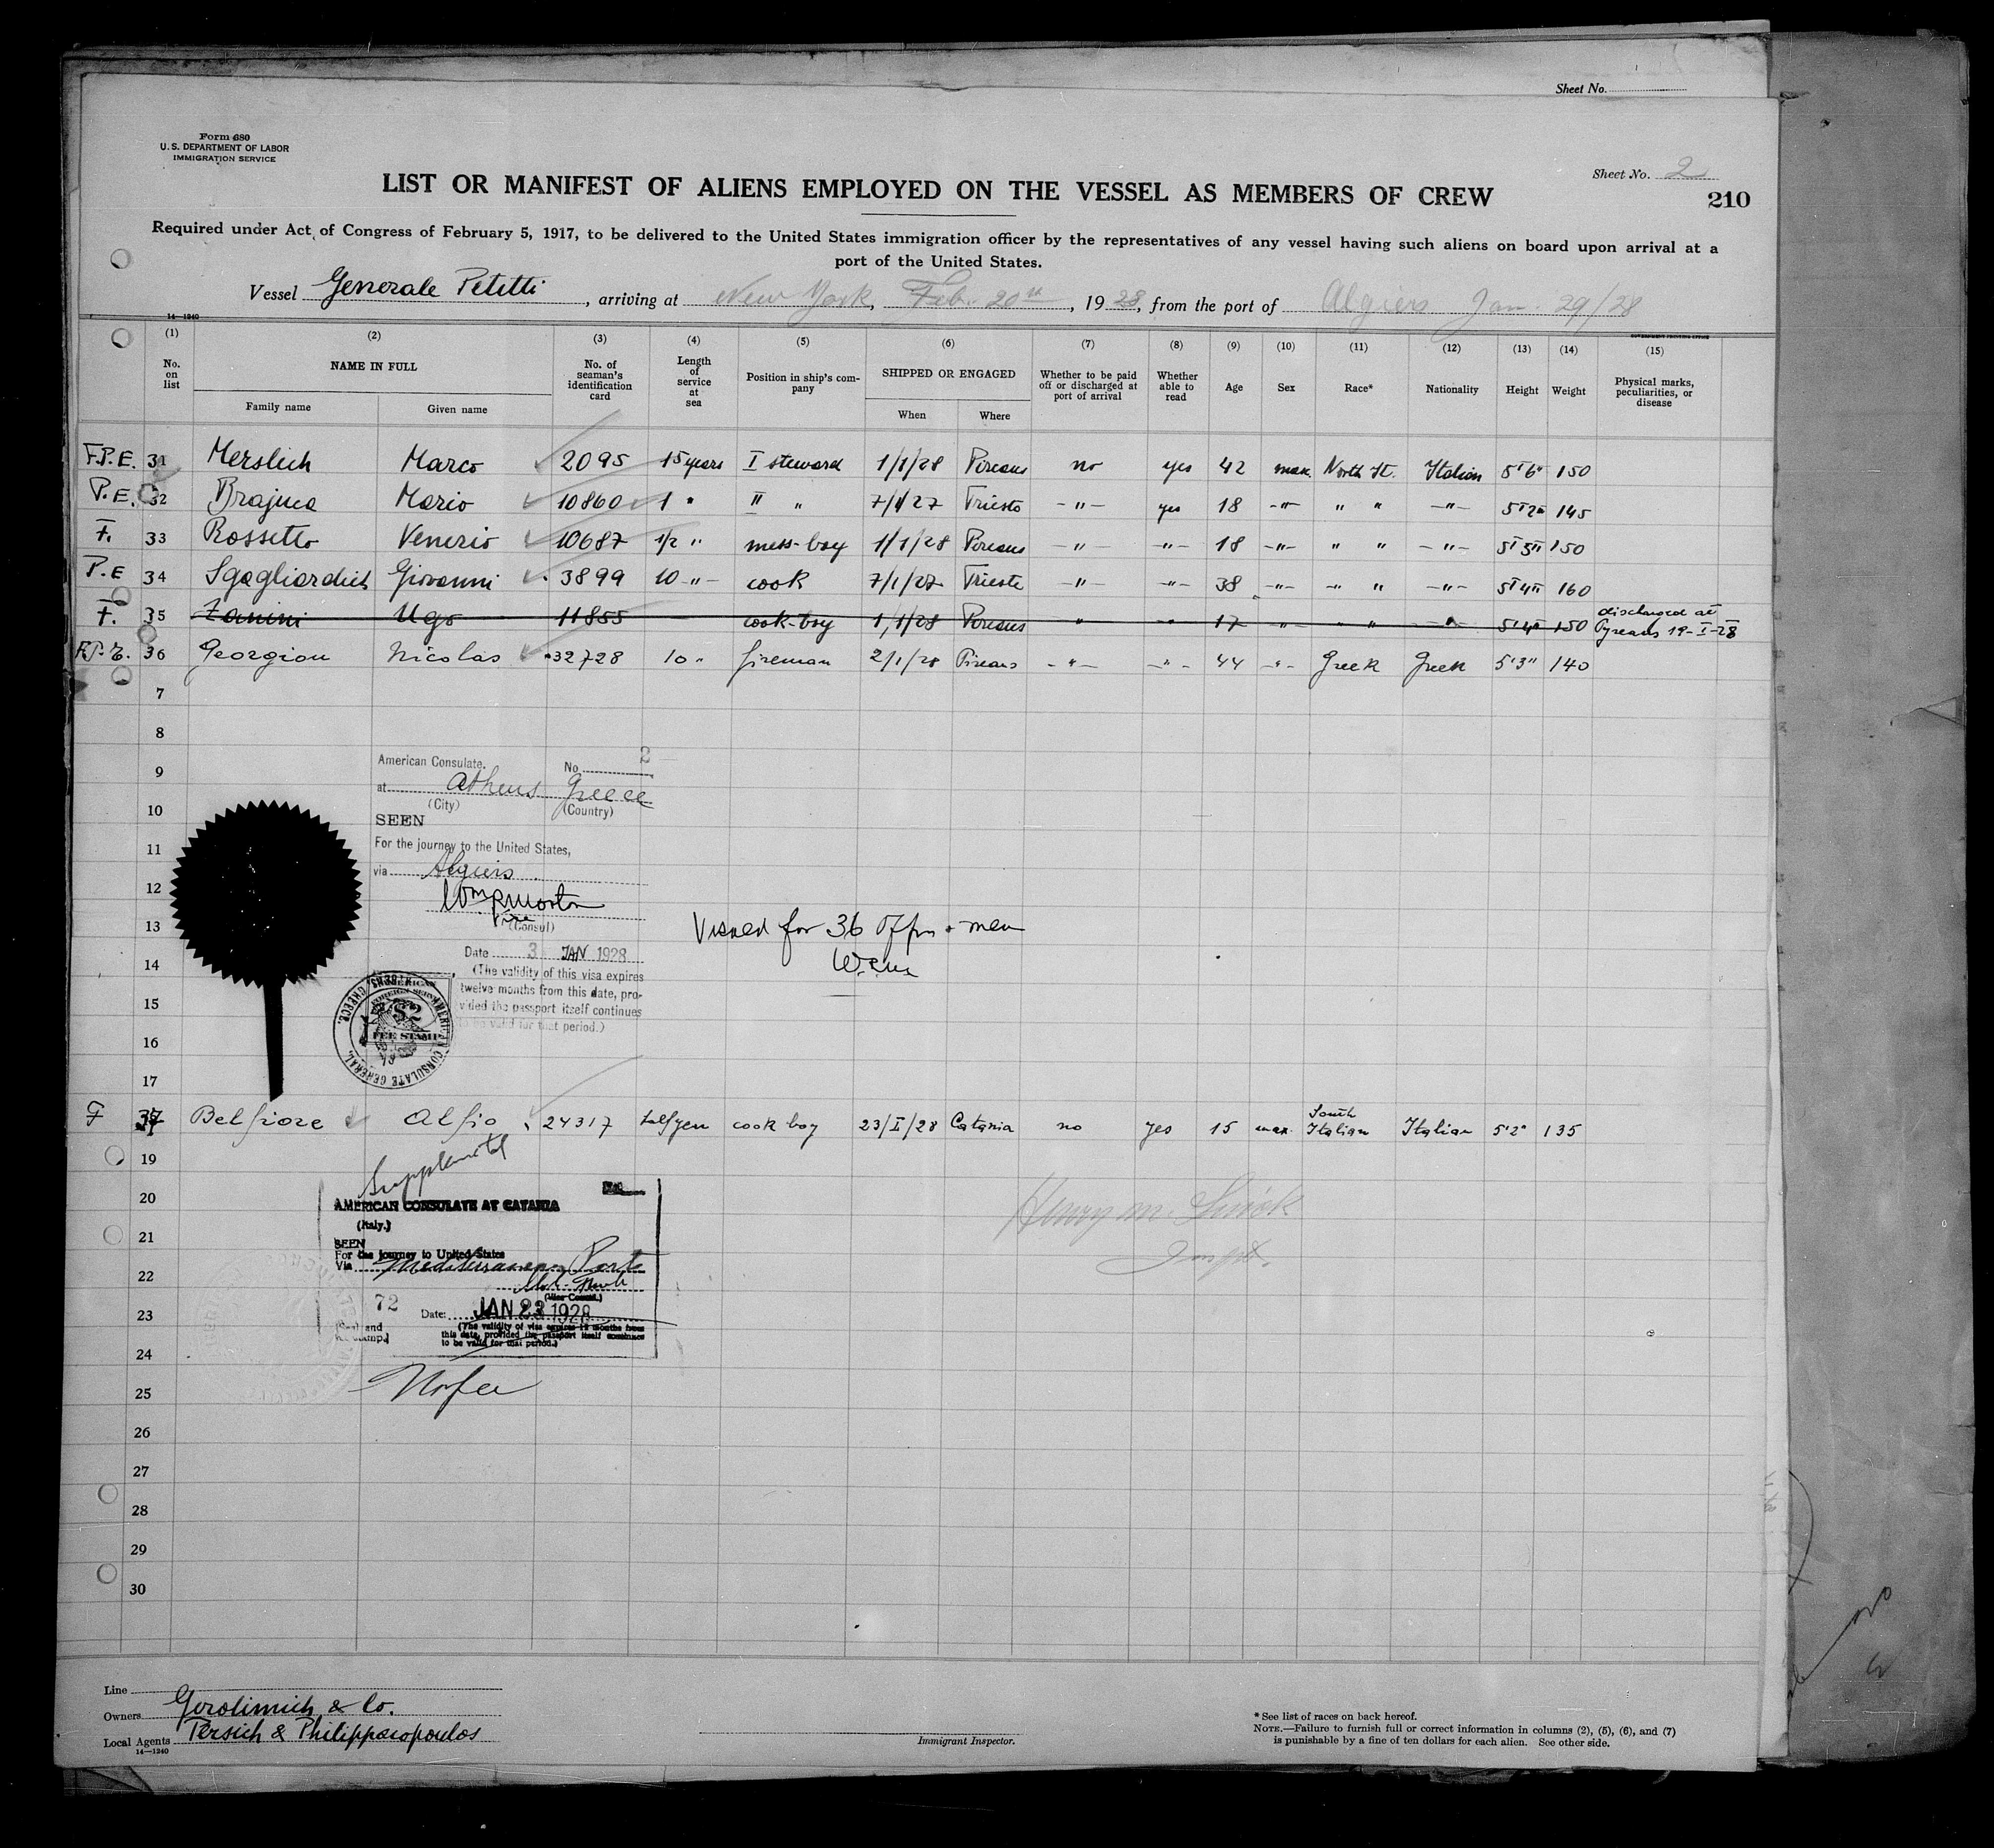 Sheet No.
Form 680
U. S. DEPARTMENT OF LABOR
IMMIGRATION SERVICE
Sheet No. 2
LIST OR MANIFEST OF ALIENS EMPLOYED ON THE VESSEL AS MEMBERS OF CREW
210
Required under Act of Congress of February 5, 1917, to be delivered to the United States immigration officer by the representatives of any vessel having such aliens on board upon arrival at a
port of the United States.
Vessel Generale Petitti, arriving at New York, Feb. 20th, 1928, from the port of Algiers Jan 29/28
14—1240
(1) (2) (3) (4) (5) (6) (7) (8) (9) (10) (11) (12) (13) (14) (15)
No. on list
NAME IN FULL
Family name
Given name
No. of seaman's identification card
Length of service at sea
Position in ship's company
SHIPPED OR ENGAGED
When
Where
Whether to be paid off or discharged at port of arrival
Whether able to read
Age
Sex
Race*
Nationality
Height
Weight
Physical marks, peculiarities, or disease
F.P.E. 31 Merslich Marco 2095 15 years I steward 1/1/28 Pireaus no yes 42 max. North It. Italian 5'6" 150
P.E. 32 Brajuca Mario 10860 1 " II " 7/1/27 Trieste -"- yes 18 -"- " " -"- 5'2" 145
F. 33 Rossetto Venerio 10687 1/2 " mess-boy 1/1/28 Pireaus -"- -"- 18 -"- " " -"- 5'5" 150
P.E 34 Sgagliardich Giovanni 3899 10 -"- cook 7/1/27 Trieste -"- -"- 38 -"- -"- " -"- 5'4" 160
F. 35 Zanini Ugo 11855 cook-boy 1/1/28 Pireaus " " 17 " " " " 5'4" 150 discharged at
Pyreaus 19-I-28
F.P.E. 36 Georgiou Nicolas 32728 10 " fireman 2/1/28 Pireaus -"- -"- 44 -"- Greek Greek 5'3" 140
7
8
American Consulate, No 2
9
at Athens Greece
(City) (Country)
10
SEEN
11
For the journey to the United States,
via Algiers
12
13
Vice
(Consul)
Visaed for 36 Offrs + men
Date 3 JAN 1928
14
(The validity of this visa expires
twelve months from this date, pro-
15
vided the passport itself continues
to be valid for that period.)
AMERICAN CONSULATE GENERAL ATHENS, GREECE.
AMERICAN FOREIGN SERVICE
$2
FEE STAMP
16
17
F 37 Belfiore Alfio 24317 half year cook boy 23/I/28 Catania no yes 15 max. South Italian Italian 5'2" 135
19
Supplemental
20
AMERICAN CONSULATE AT CATANIA
(Italy.)
Henry M.
21
SEEN
For the journey to United States
Via Mediterranean Ports
Inspt.
22
(Vice Consul.)
72
23
Date: JAN 23 1928
(Seal and
fee stamp.)
(The validity of visa expires 12 months from
this date, provided the passport itself continues
to be valid for that period.)
24
No fee
25
26
27
28
29
30
Line
Owners Gerolimich & Co.
Local Agents Tersich & Philippacopoulos
14—1240
Immigrant Inspector.
* See list of races on back hereof.
NOTE.—Failure to furnish full or correct information in columns (2), (5), (6), and (7)
is punishable by a fine of ten dollars for each alien. See other side.